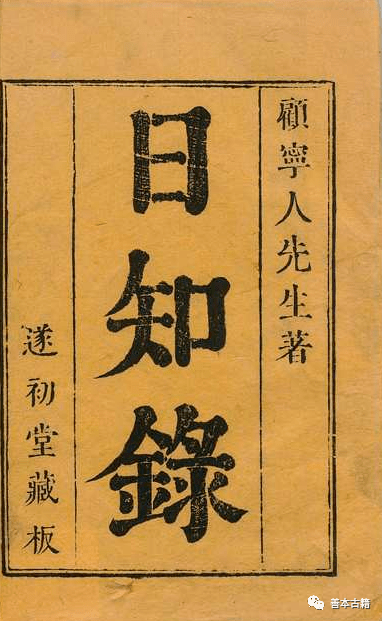 顧寧人先生著
日知錄
遂初堂藏板
善本古籍